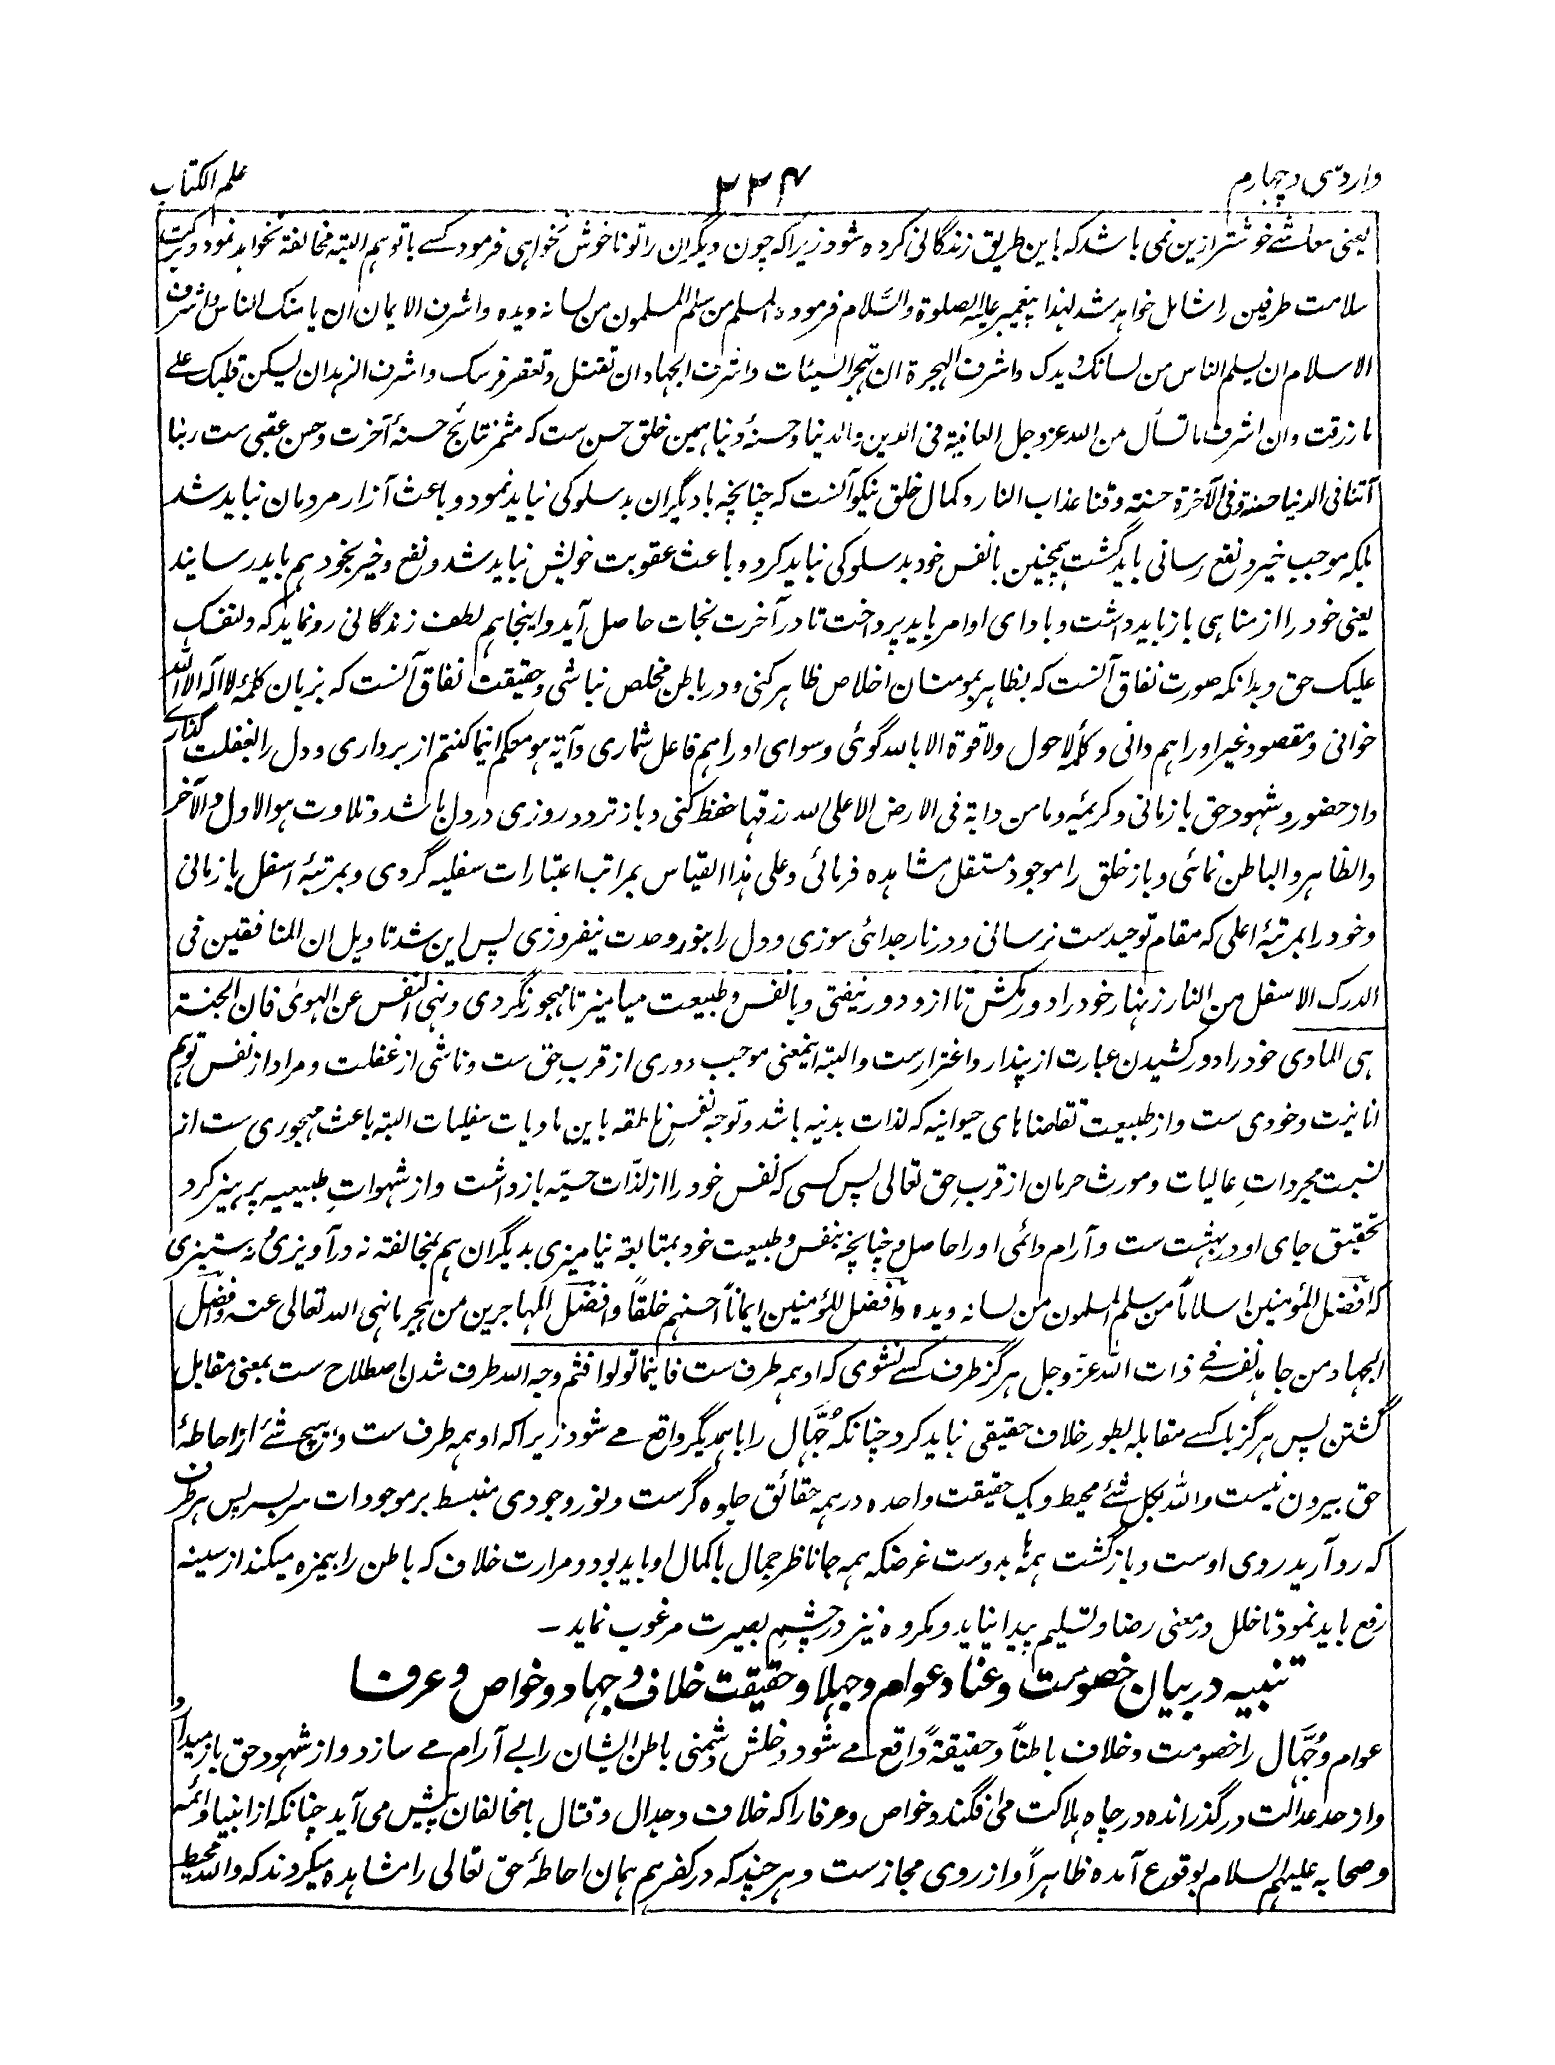 وارد سی و چهارم ۲۳۴ علم الکتاب
یعنی معاشے خوشتر ازین نمی باشد که باین طریق زندگانی کرده شود زیرا که چون دیگران را تو ناخوش نخواهی فرمود کسے با تو هم البته مخالفة نخواهد نمود و برکت
سلامت طرفین را شامل خواهد شد لهذا پیغمبر علیه الصلوة والسّلام فرموده المسلم من سلم المسلمون من لسانه ویده واشرف الایمان ان یامنک الناس واشرف
الاسلام ان یسلم الناس من لسانک ویدک واشرف الهجرة ان تهجر السیئات واشرف الجهاد ان تقتل وتعقر فرسک واشرف الزهد ان لیسکن قلبک علے
ما رزقت وان اشرف ما تسأل من الله عزوجل العافیة فی الدین والدنیا وحسنۀ دنیا همین خلق حسن ست که مثمر نتائج حسنۀ آخرت وحسن عقبی ست ربنا
آتنا فی الدنیا حسنة وفی الآخرة حسنة وقنا عذاب النار وکمال خلق نیکو آنست که چنانچه با دیگران بد سلوکی نباید نمود و باعث آزار مردمان نباید شد
بلکه موجب خیر و نفع رسانی باید گشت همچنین با نفس خود بد سلوکی نباید کرد و باعث عقوبت خویش نباید شد و نفع و خیر بخود هم باید رسانید
یعنی خود را از مناهی باز باید داشت و با دای اوامر باید پرداخت تا در آخرت نجات حاصل آید و اینجا هم لطف زندگانی رونماید که ولنفسک
علیک حق و بدانکه صورت نفاق آنست که بظاهر بمومنان اخلاص ظاهر کنی و در باطن مخلص نباشی و حقیقت نفاق آنست که بزبان کلمۀ لا اله الا الله
خوانی و مقصود غیر او را هم دانی و کلمۀ لا حول ولا قوة الا بالله گوئی و سوای او را هم فاعل شماری و آیۀ هو معکم اینما کنتم از برداری و دل را بغفلت گذاری
و از حضور و شهود حق باز مانی و کریمۀ وما من دابة فی الارض الا علی الله رزقها حفظ کنی و باز تردد روزی در دل باشد و تلاوت هو الاول والآخر
والظاهر والباطن نمائی و باز خلق را موجود مستقل مشاهده فرمائی وعلی هذا القیاس بمراتب اعتبارات سفلیه گردی و بمرتبۀ اسفل باز مانی
وخود را بمرتبۀ اعلی که مقام توحید ست نرسانی و در نار جدائی سوزی و دل را بنور وحدت نیفروزی پس این شد تاویل ان المنافقین فی
الدرک الاسفل من النار زنهار خود را دور مکش تا ازو دور نیفتی و با نفس و طبیعت میامیز تا مهجور نگردی ونهی النفس عن الهوی فان الجنة
هی الماوی خود را دور کشیدن عبارت از پندار و اغترار ست و البته اینمعنی موجب دوری از قربِ حق ست و ناشی از غفلت و مراد از نفس توهم
انانیت و خودی ست و از طبیعت تقاضاهای حیوانیه که لذات بدنیه باشد و توجه نفسِ ناطقه باین مادیات سفلیات البته باعث مهجوری ست از
نسبت مجرداتِ عالیات و مورث حرمان از قربِ حق تعالی پس کسی که نفس خود را از لذّات حسیّه بازداشت و از شهواتِ طبیعیه پرهیز کرد
تحقیق جای او در بهشت ست و آرام دائمی او را حاصل و چنانچه بنفس و طبیعت خود بمتابعة نیامیزی بدیگران هم بمخالفة نه درآویزی و نه ستیزی
که افضل المؤمنین اسلاماً من سلم المسلمون من لسانه ویده وافضل المؤمنین ایماناً احسنهم خلقاً وافضل المهاجرین من هجر ما نهی الله تعالی عنه وافضل
الجهاد من جاهد نفسه فی ذات الله عزوجل هرگز طرف کسے نشوی که او همه طرف ست فاینما تولوا فثم وجه الله طرف شدن اصطلاح ست بمعنی مقابل
گشتن پس هرگز بکسے مقابله بطور خلاف حقیقی نباید کرد چنانکه جُهّال را با همدیگر واقع مے شود زیرا که او همه طرف ست و هیچ شئے از احاطۀ
حق بیرون نیست والله بکل شئے محیط و یک حقیقت واحده در همه حقائق جلوه گرست و نور وجودی منبسط بر موجودات سربسر پس هر طرف
که رو آرید روی اوست و بازگشت همه ها بدوست غرضکه همه جا ناظر جمال باکمال او باید بود و مرارت خلاف که باطن را بیمزه میکند از سینه
رفع باید نمود تا خلل در معنی رضا و تسلیم پیدا نیاید و مکروه نیز در چشمِ بصیرت مرغوب نماید ـ
تنبیه در بیان خصومت و عناد عوام و جهلا و حقیقت خلاف و جهاد و خواص و عرفا
عوام و جُهّال را خصومت و خلاف باطناً و حقیقةً واقع مے شود و خلش دشمنی باطن ایشان را بے آرام مے سازد و از شهود حق باز میدارد
و از حد عدالت در گذرانده در چاه هلاکت می افگند و خواص و عرفا را که خلاف و جدال و قتال با مخالفان پیش می آید چنانکه از انبیا و ائمه
و صحابه علیهم السلام بوقوع آمده ظاهراً و از روی مجاز ست و هر چند که در کفر هم همان احاطۀ حق تعالی را مشاهده میکردند که والله محیط